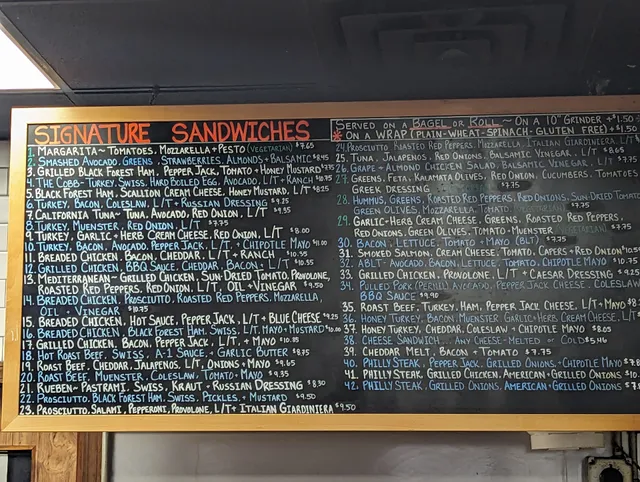 SIGNATURE SANDWICHES
1. MARGARITA~ TOMATOES, MOZZARELLA + PESTO (VEGETARIAN) $7.65
2. SMASHED AVOCADO, GREENS, STRAWBERRIES, ALMONDS + BALSAMIC $8.45
3. GRILLED BLACK FOREST HAM, PEPPER JACK, TOMATO + HONEY MUSTARD
4. THE COBB~ TURKEY, SWISS, HARD BOILED EGG, AVOCADO, L/T + RANCH
5. BLACK FOREST HAM, SCALLION CREAM CHEESE, HONEY MUSTARD, L/T $8.25
6. TURKEY, BACON, COLESLAW, L/T + RUSSIAN DRESSING $9.25
7. CALIFORNIA TUNA~ TUNA, AVOCADO, RED ONION, L/T
8. TURKEY, MUENSTER, RED ONION, L/T
9. TURKEY, GARLIC + HERB CREAM CHEESE, RED ONION, L/T $8.00
10. TURKEY, BACON, AVOCADO, PEPPER JACK, L/T + CHIPOTLE MAYO
11. BREADED CHICKEN, BACON, CHEDDAR, L/T + RANCH
12. GRILLED CHICKEN, BBQ SAUCE, CHEDDAR, BACON, L/T
13. MEDITERRANEAN~ GRILLED CHICKEN, SUN-DRIED TOMATO, PROVOLONE,
ROASTED RED PEPPERS, RED ONION, L/T, OIL + VINEGAR $9.50
14. BREADED CHICKEN, PROSCIUTTO, ROASTED RED PEPPERS, MOZZARELLA,
OIL + VINEGAR $10.75
15. BREADED CHICKEN, HOT SAUCE, PEPPER JACK, L/T + BLUE CHEESE
16. BREADED CHICKEN, BLACK FOREST HAM, SWISS, L/T, MAYO + MUSTARD
17. GRILLED CHICKEN, BACON, PEPPER JACK, L/T, + MAYO
18. HOT ROAST BEEF, SWISS, A-1 SAUCE + GARLIC BUTTER
19. ROAST BEEF, CHEDDAR, JALAPENOS, L/T, ONIONS + MAYO
20. ROAST BEEF, MUENSTER, COLESLAW, TOMATO + MAYO $9.35
21. RUEBEN~ PASTRAMI, SWISS, KRAUT + RUSSIAN DRESSING
22. PROSCIUTTO, BLACK FOREST HAM, SWISS, PICKLES, + MUSTARD $9.50
23. PROSCIUTTO, SALAMI, PEPPERONI, PROVOLONE, L/T + ITALIAN GIARDINIERA $9.50
SERVED ON A BAGEL OR ROLL ~ ON A 10" GRINDER +$1.50
* ON A WRAP (PLAIN-WHEAT-SPINACH-GLUTEN FREE) +$1.50
24. PROSCIUTTO, ROASTED RED PEPPERS, MOZZARELLA, ITALIAN GIARDINIERA, L/T
25. TUNA, JALAPENOS, RED ONIONS, BALSAMIC VINEGAR, L/T $8.65
26. GRAPE + ALMOND CHICKEN SALAD, BALSAMIC VINEGAR, L/T
27. GREENS, FETA, KALAMATA OLIVES, RED ONION, CUCUMBERS, TOMATOES
GREEK DRESSING $7.75
28. HUMMUS, GREENS, ROASTED RED PEPPERS, RED ONIONS, SUN-DRIED TOMATO
GREEN OLIVES, MOZZARELLA, TOMATO
29. GARLIC + HERB CREAM CHEESE, GREENS, ROASTED RED PEPPERS,
RED ONIONS, GREEN OLIVES, TOMATO + MUENSTER
30. BACON, LETTUCE, TOMATO + MAYO (BLT) $7.75
31. SMOKED SALMON, CREAM CHEESE, TOMATO, CAPERS + RED ONION
32. ABLT~ AVOCADO, BACON, LETTUCE, TOMATO + CHIPOTLE MAYO
33. GRILLED CHICKEN, PROVOLONE, L/T + CAESAR DRESSING
34. PULLED PORK (PERNIL), AVOCADO, PEPPER JACK CHEESE, COLESLAW
BBQ SAUCE $9.90
35. ROAST BEEF, TURKEY, HAM, PEPPER JACK CHEESE, L/T + MAYO
36. HONEY TURKEY, BACON, MUENSTER, GARLIC + HERB CREAM CHEESE, L/T
37. HONEY TURKEY, CHEDDAR, COLESLAW + CHIPOTLE MAYO $8.05
38. CHEESE SANDWICH... ANY CHEESE~ MELTED OR COLD $5.46
39. CHEDDAR MELT, BACON + TOMATO $7.75
40. PHILLY STEAK, PEPPER JACK, GRILLED ONIONS + CHIPOTLE MAYO
41. PHILLY STEAK, GRILLED CHICKEN, AMERICAN + GRILLED ONIONS
42. PHILLY STEAK, GRILLED ONIONS, AMERICAN + GRILLED ONIONS